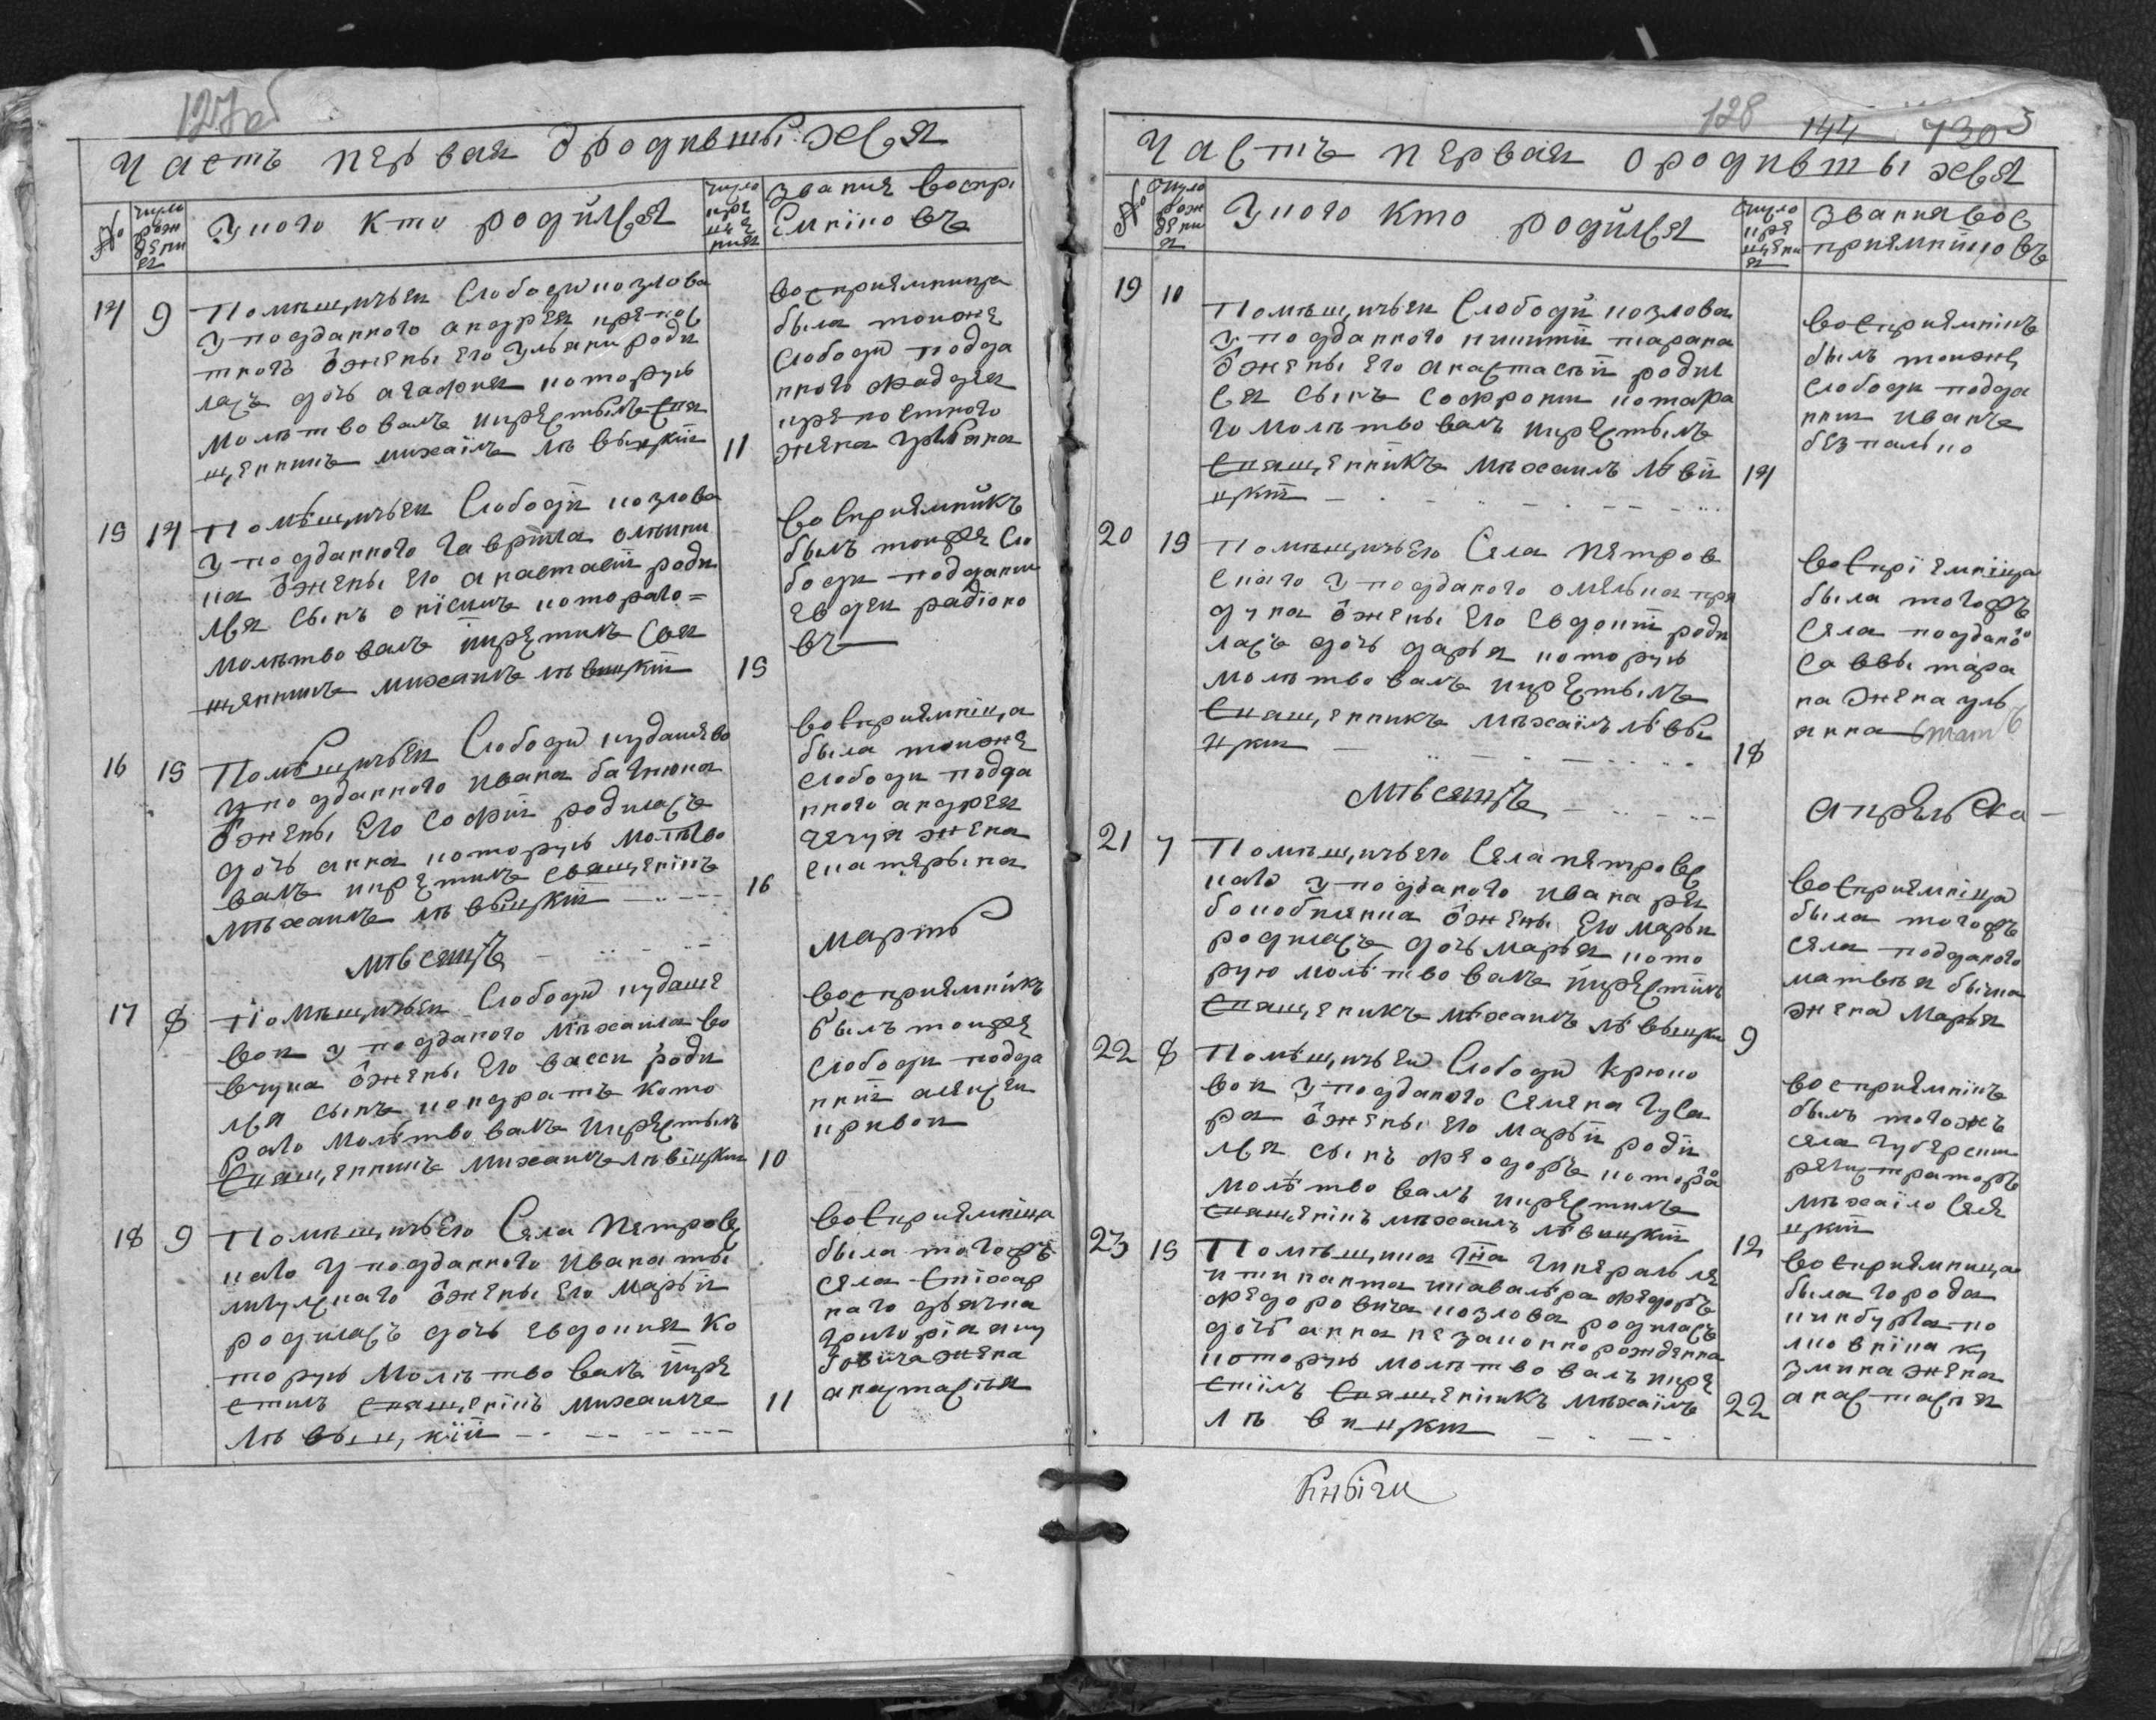 127об
Часть первая о родившыхся
№
число рождения
У кого кто родился
число крещения
звания воспри
емниковъ
14 9
Помѣщичьей слободы козлова
у подданного андрея крепос
тного и жены его ульяни роди
лась дочь агафия которую
молитвовалъ и крестилъ свя
щенникъ михаилъ лѣвыцкій
11
восприемница
была тоейже
слободы подда
нного фаддея
крепостного
жена ульяна
15 14
Помѣщичьей слободи козлова
у подданного гаврила
и жены его анастасіи роди
лся сынъ онісимъ которого
молитвовалъ и крестилъ свя
щенникъ михаилъ лѣвицкій
15
восприемникъ
былъ тоейже сло
боди подданни
евдей радіоно
въ
16 15
Помѣщичьей слободы кудашево
у подданного ивана багнюка
и жены его софіи родилась
дочь анна которую молитво
валъ и крестилъ священікъ
михаилъ лѣвыцкій
16
восприемница
была тоейже
слободи подда
нного андрея
жена
екатерына
мѣсяцъ
мартъ
17 8
Помѣщичьей слободы кудаше
вой у подданого михаила во
вчука и жены его васси роди
лся сынъ кондратъ кото
рого молитвовалъ и крестылъ
священникъ михаилъ лѣвіцкий
10
восприемникъ
былъ тоейже
слободи подда
нній алексей
кривой
18 9
Помѣщичьего села петровс
кого у подданного ивана
и жены его марьи
родилась дочь евдокия ко
торую молитвовалъ и кре
стилъ священікъ михаилъ
лѣвыцкій
11
восприемница
была тогожъ
села стіхар
ного дьячка
григоріа
жена
анастасія
128 144 130 3
Часть первая о родившыхся
№
число рождения
У кого кто родился
число крещения
звания вос
приемниковъ
19 10
Помѣщичьей слободы козлова
у подданного никити тарана
и жены его анастасіи родил
ся сынъ софрони котора
го молитвовалъ и крестылъ
священникъ михаилъ лѣви
цкій
14
восприемникъ
былъ тоейже
слободи подда
нни иванъ
безпалько
20 15
Помѣщичьего села петров
скаго у подданого омелька пря
дуна и жены его евдокіи роди
лась дочь дарья которую
молитвовалъ и крестылъ
священникъ михаилъ лѣвы
цкий
18
восприемница
была тогожъ
села подданого
саввы тара
на жена уль
янна
мѣсяцъ
апрель
21 7
Помѣщичьего села петровс
кого у подданого ивана ря
боконя и жены его марьи
родилась дочь марья кото
рую молитвовалъ и крестилъ
священикъ михаилъ лѣвыцки
9
восприемница
была тогожъ
села подданого
матвея бычка
жена марья
22 8
Помѣщичьей слободы крюко
вой у подданого семена гуса
ра и жены его марьи роди
лся сынъ феодоръ котора
молитвовалъ и крестилъ
священікъ михаилъ лѣвицкій
12
восприемникъ
былъ тогожъ
села губернски
регистраторъ
михаило
цкій
23 15
Помѣщика гна генералъ ле
йтинанта и кавальра федоръ
федоровича козлова родилась
дочь анна незаконно рожденна
которую молитвовалъ и кре
стилъ священникъ михаилъ
лѣвицкій
22
восприемница
была города
змина жена
анастасия
Книги